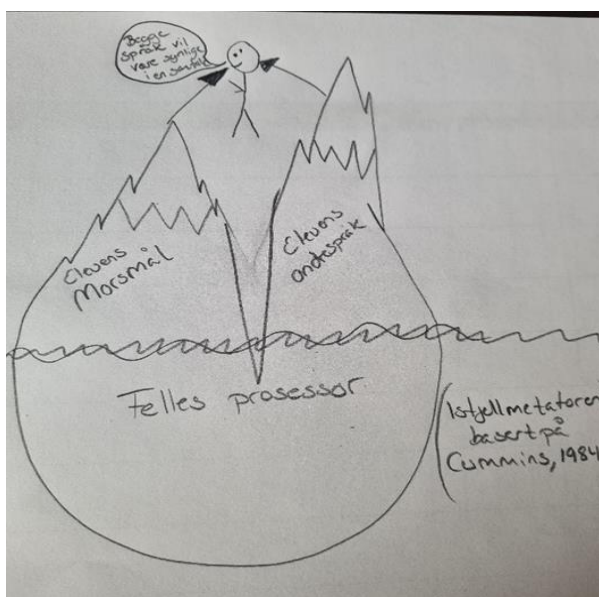 Begge
språk vil
være synlige
i en samtale
Elevens
Morsmål
Elevens
andrespråk
Felles prosessor
Isfjellmetaforen
basert på
Cummins, 1984